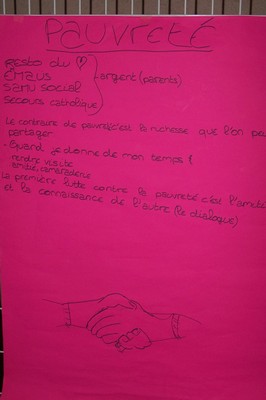 Pauvreté
Resto du
Émaus
Samu social
Secours catholique
argent (parents)
Le contraire de pauvreté c'est la richesse que l'on peut
partager
- Quand je donne de mon temps
- rendre visite
- amitié, camaraderie
La première lutte contre la pauvreté c'est l'amitié
et la connaissance de l'autre (le dialogue)